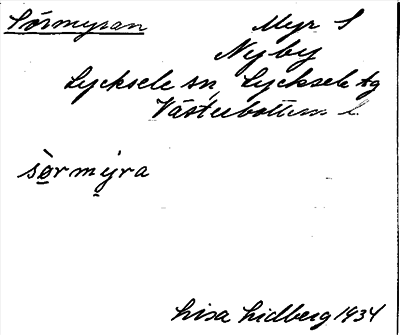 Sörmyran Myr S
Nyby
Lycksele sn, Lycksele tg
Västerbottens l.
sör mýra
Lisa Lidberg 1934